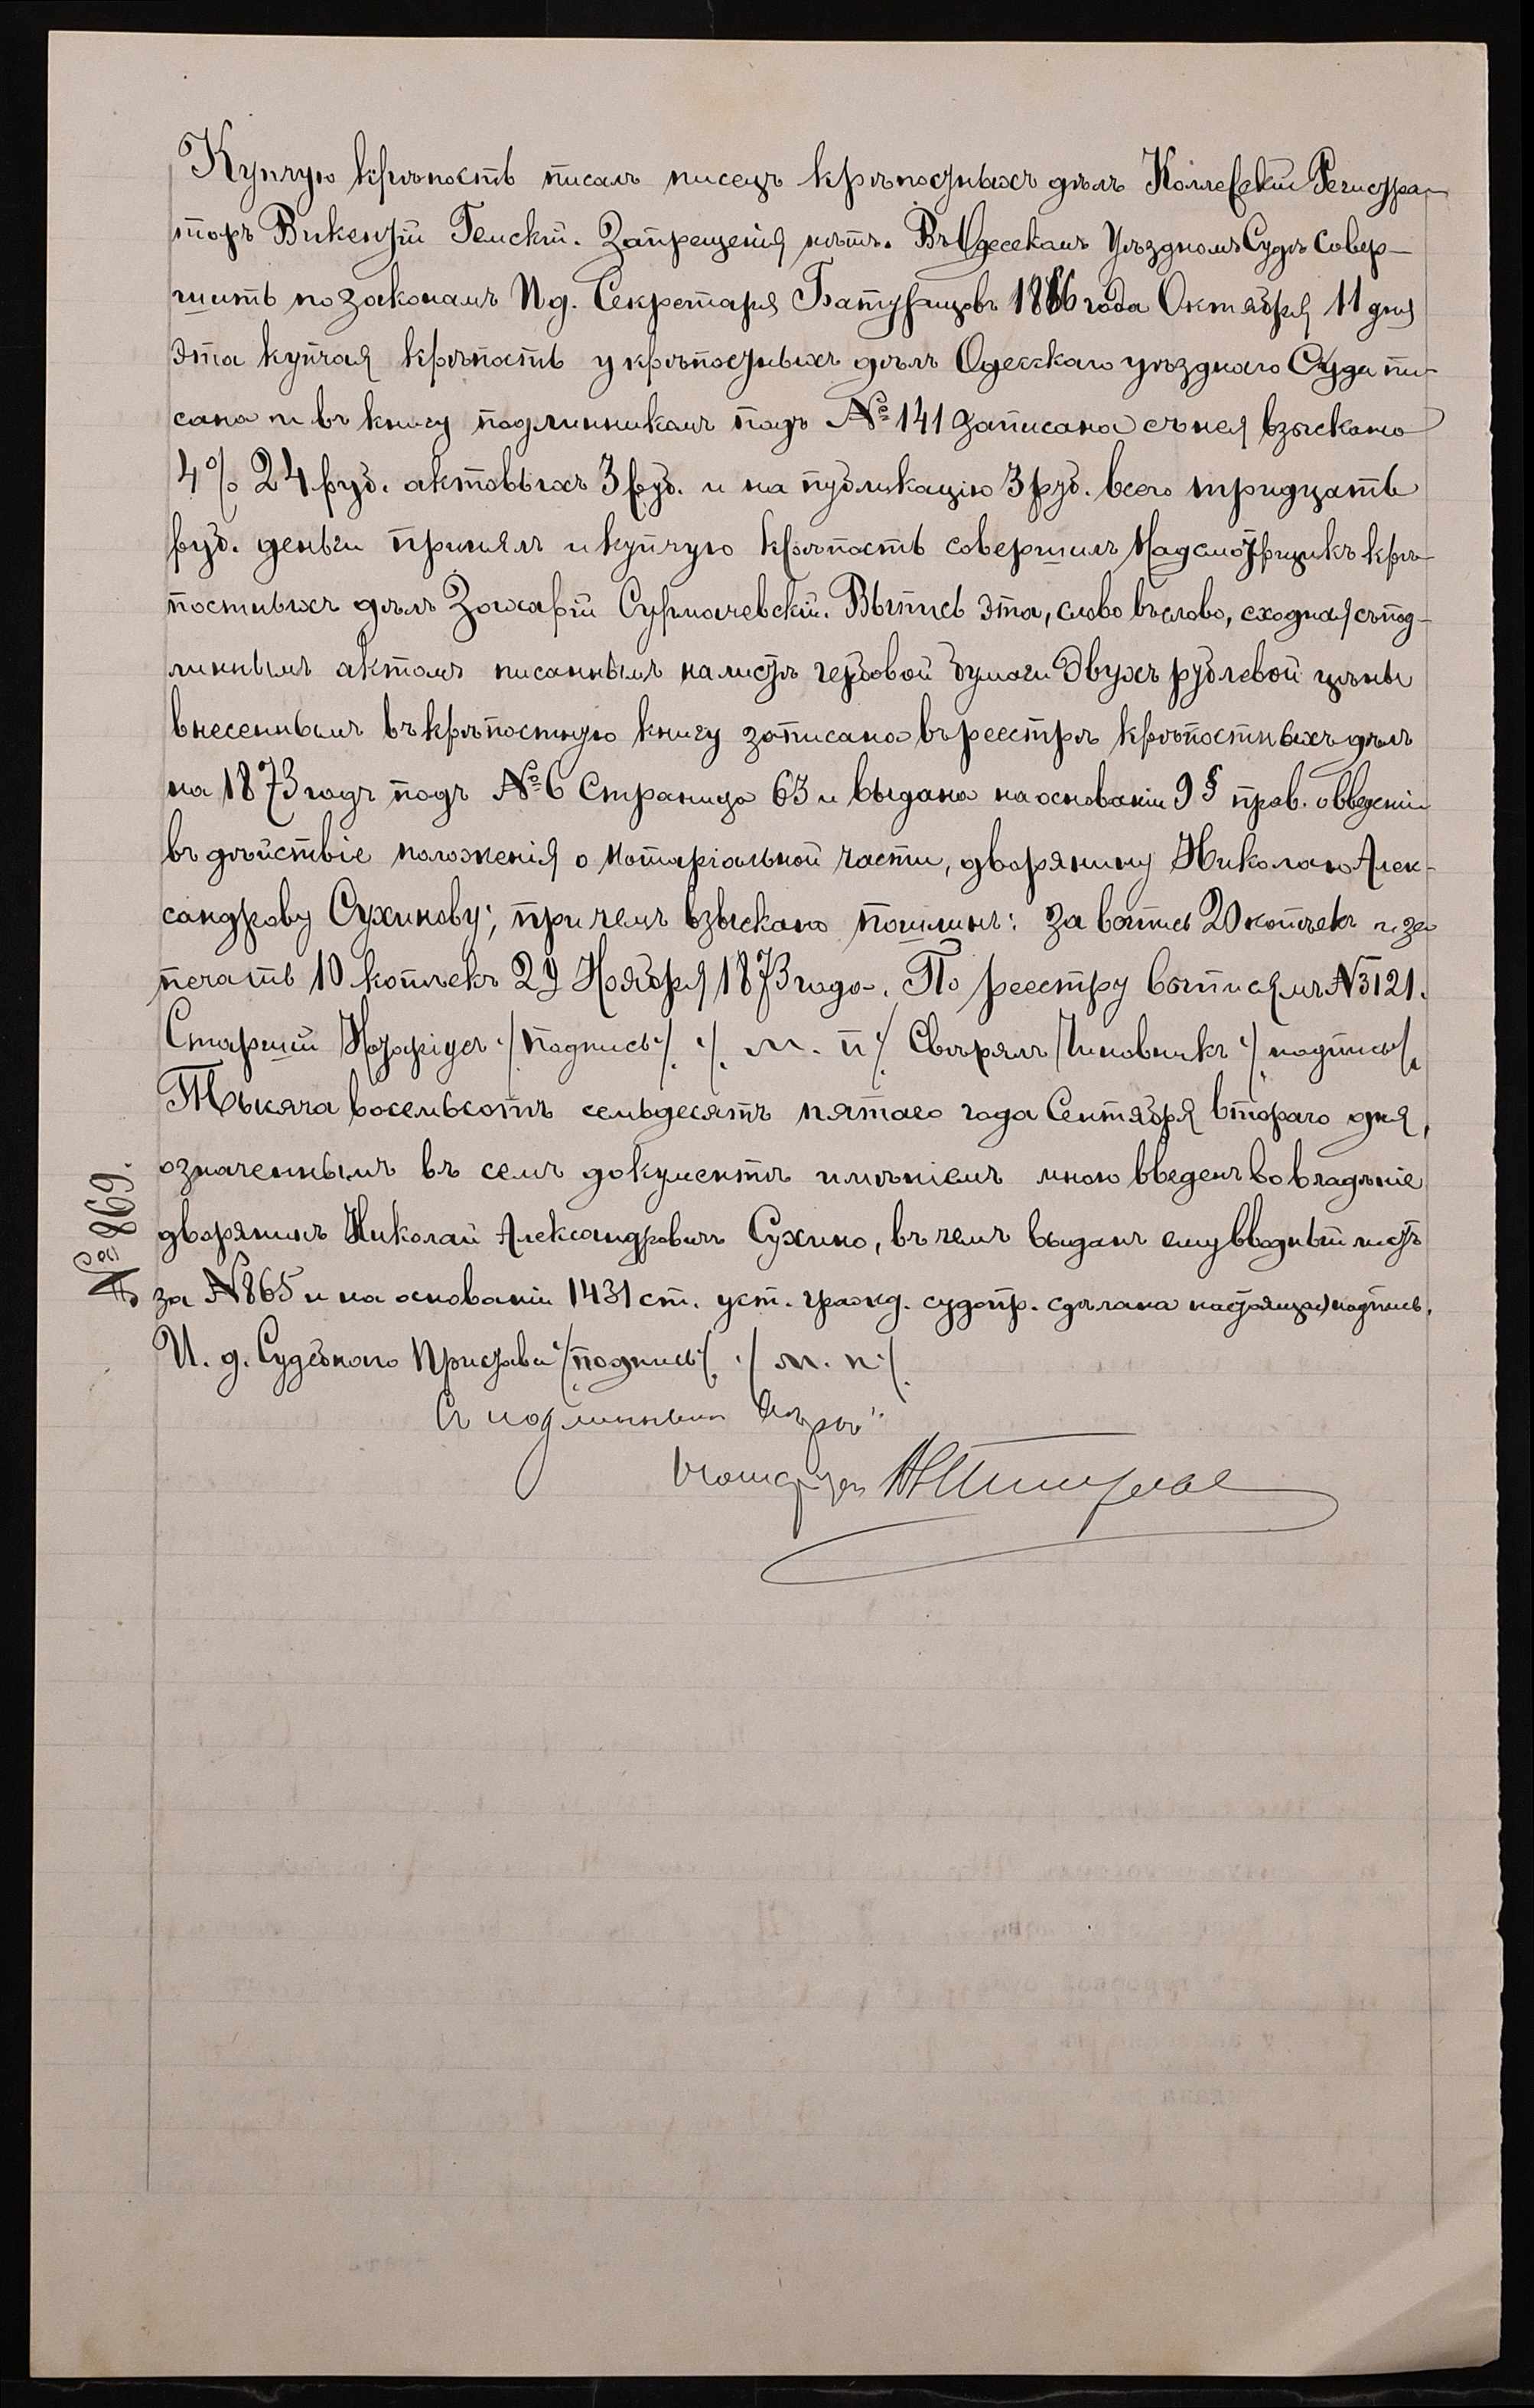 Купчую крѣпость писалъ писецъ крѣпостныхъ дѣлъ Коллежскій Регистра-
торъ Викентій Гемскій. Запрещенія нѣтъ. Въ Одесскомъ Уѣздномъ Судѣ совер-
шить по законамъ И д. Секретаря 1866 года Октября 11 дня
Эта купчая крѣпость у крѣпостныхъ дѣлъ Одесскаго уѣзднаго Суда пи-
сана и въ книгу подлинникомъ подъ № 141 записана съ нея взыскано
4% 24 руб. актовыхъ 3 руб. и на публикацію 3 руб. всего тридцать
руб. деньги принялъ и купчую крѣпость совершилъ Надсмотрщикъ крѣ-
постныхъ дѣлъ Захарій Сурмачевскій. Выпись эта, слово въ слово, сходная съ под-
линнымъ актомъ писаннымъ на листѣ гербовой бумаги двухъ рублевой цѣны
внесеннымъ въ крѣпостную книгу записана въ реестръ крѣпостныхъ дѣлъ
на 1873 годъ подъ № 6 страница 63 и выдана на основаніи 9 § прав. о введеніи
въ дѣйствіе положенія о нотаріальной части, дворянину Николаю Алек-
сандрову Сухинову; при чемъ взыскано пошлинъ: за выпись 20 копѣекъ и за
печать 10 копѣекъ 29 Ноября 1873 года. По реестру выписямъ № 3121.
Старшій Нотаріусъ /подпись/. / м. п / Свѣрялъ Чиновникъ /подпись/.
Тысяча восемьсотъ семьдесятъ пятаго года Сентября втораго дня,
означеннымъ въ семъ документѣ имѣніемъ мною введенъ во владѣніе
дворянинъ Николай Александровичъ Сухино, въ чемъ выданъ ему вводный листъ
за № 865 и на основаніи 1431 ст. уст. гражд. судопр. сдѣлана настоящая надпись.
И. д. Судебнаго Пристава /подпись/. / м. п. /.
Съ подлиннымъ вѣрно:
Нотаріусъ
№ 869.